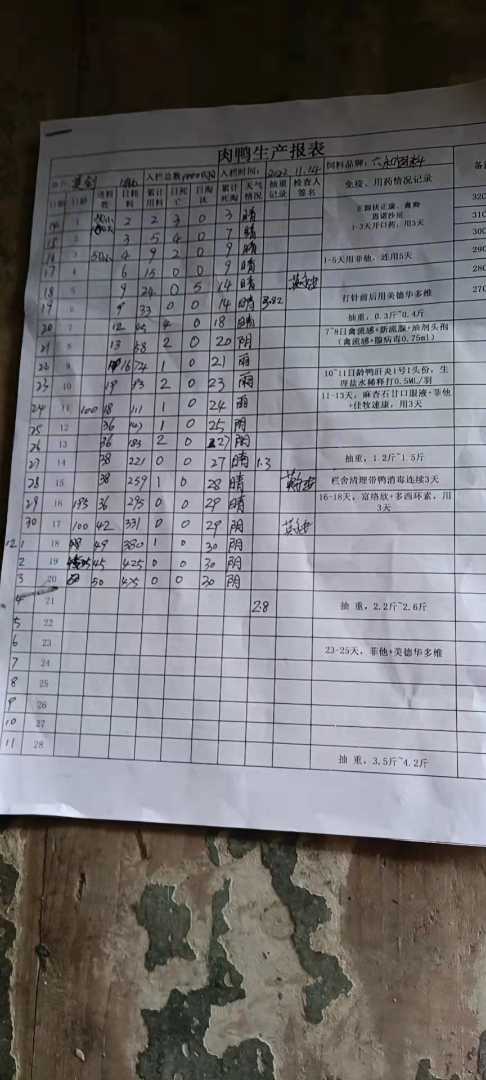 肉鸭生产报表
入栏总数 入栏时间: 2023.11.14 饲料品牌:
日期 日龄 送料数 日耗料 累计用料 日死亡 日淘汰 累计死淘 天气情况 抽重记录 检查人签名 免疫、用药情况记录
1 2 2 3 0 3 晴 1-3天开口药,用3天
15 2 3 5 4 0 7 晴
16 3 4 9 2 0 9 晴 1-5天用菲他,连用5天
17 4 6 15 0 0 9 晴
18 5 9 24 0 5 14 晴 打针前后用美德华多维
19 6 9 33 0 0 14 晴 抽重,0.3斤~0.4斤
20 7 12 45 4 0 18 晴 7~8日禽流感+新流腺+油剂头孢
21 8 13 58 2 0 20 阴 (禽流感+腺病毒0.75ml)
22 9 16 74 1 0 21 雨
23 10 19 93 2 0 23 雨 10~11日龄鸭肝炎1号1头份,生理盐水稀释打0.5ML/羽
24 11 100 18 111 1 0 24 雨 11-13天,麻杏石甘口服液+菲他+佳牧速康,用3天
25 12 36 147 1 0 25 阴
26 13 36 183 2 0 27 阴
27 14 38 221 0 0 27 晴 1.3 抽重,1.2斤~1.5斤
28 15 38 259 1 0 28 晴 栏舍清理带鸭消毒连续3天
29 16 195 36 295 0 0 29 晴 16-18天,富络欣+多西环素,用3天
30 17 100 42 331 0 0 29 阴
12.1 18 49 380 1 0 30 阴
2 19 45 425 0 0 30 阴
3 20 50 475 0 0 30 阴
4 21 2.8 抽重,2.2斤~2.6斤
5 22
6 23 23-25天,菲他+美德华多维
7 24
8 25
9 26
10 27
11 28 抽重,3.5斤~4.2斤